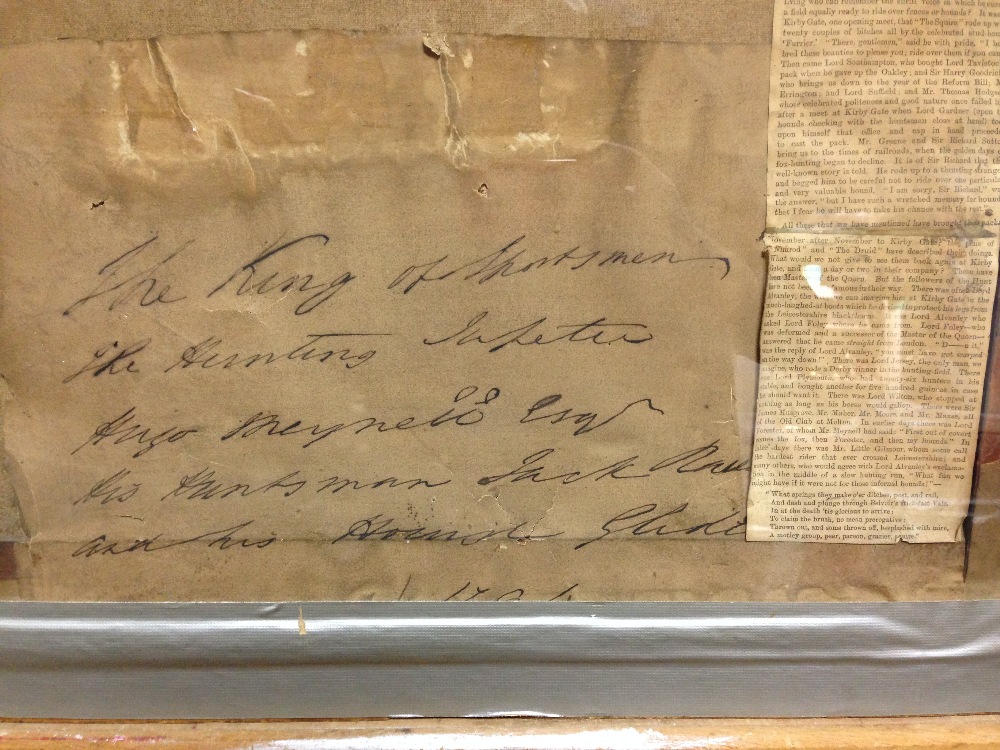 The King of Sportsmen
The Hunting Jupeter
Hugo Meynell Esqr
His Huntsman Jack
and his Hounds
living who can remember the
a field equally ready to ride over fences or hounds? It was
Kirby Gate, one opening meet, that "The Squire" rode up
twenty couples of bitches all by the celebrated
'Furrier.' "There, gentlemen," said he with pride, "I
bred these beauties to please you; ride over them if you can
Then came Lord Southampton, who bought Lord
pack when he gave up the Oakley; and Sir Harry
who brings us down to the year of the Reform Bill;
Errington; and Lord Suffield; and Mr. Thomas
whose celebrated politeness and good nature once failed
after a meet at Kirby Gate when Lord Gardner (upon
hounds checking with the huntsman close at hand)
upon himself that office and cap in hand
to cast the pack. Mr. Greene and Sir Richard
bring us to the times of railroads, when the golden days
fox-hunting began to decline. It is of Sir Richard that
well-known story is told. He rode up to a thrusting
and begged him to be careful not to ride over one
and very valuable hound. "I am sorry, Sir Richard,"
the answer, "but I have such a wretched memory for
that I fear he will have to take his chance with the rest."
All these that we have mentioned have brought their
November after November to Kirby Gate; the pens of
"Nimrod" and "The Druid" have described their doings.
What would we not give to see them back again at Kirby
Gate, and a day or two in their company? These have
been Masters of the Quorn. But the followers of the Hunt
have not been famous in their way. There was
Alvanley, the we can imagine him at Kirby Gate in the
much-laughed-at boots which he to protect his legs from
the Leicestershire blackthorns. It was Lord Alvanley who
asked Lord Foley where he came from. Lord Foley—who
was deformed and a successor of the Master of the Quorn—
answered that he came straight from London. "D——n it,"
was the reply of Lord Alvanley, "you must have got warped
on the way down!" There was Lord Jersey, the only man, we
imagine, who rode a Derby winner in the hunting-field. There
was Lord Plymouth, who had twenty-six hunters in his
stable, and bought another for five hundred guineas in case
he should want it. There was Lord Wilton, who stopped at
nothing as long as his horse would gallop. There were Sir
James Musgrave, Mr. Maher, Mr. Moore, and Mr. Maxse, all
of the Old Club at Melton. In earlier days there was Lord
Forester, of whom Mr. Meynell had said: "First out of covert
comes the fox, then Forester, and then my hounds." In
later days there was Mr. Little Gilmour, whom some call
the hardest rider that ever crossed Leicestershire; and
many others, who would agree with Lord Alvanley's exclama-
tion in the middle of a slow hunting run, "What fun we
might have if it were not for these infernal hounds!"—
"What springs they make o'er ditches, post, and rail,
And dash and plunge through Belvoir's Vale,
In at the death 'tis glorious to arrive;
To claim the brush, no mean prerogative;
Thrown out, and some thrown off, besplashed with mire,
A motley group, peer, parson, grazier, squire."